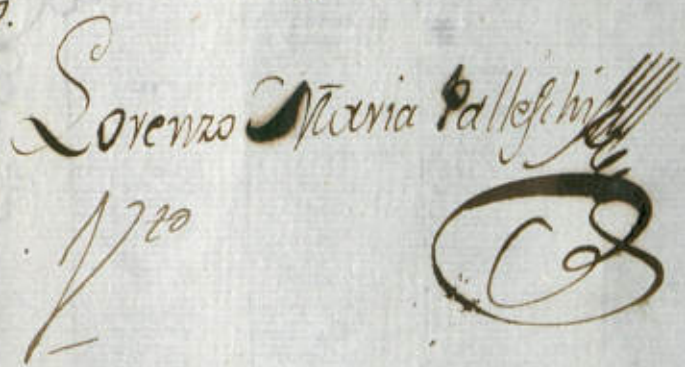 Lorenzo Maria Palleschi
Vto